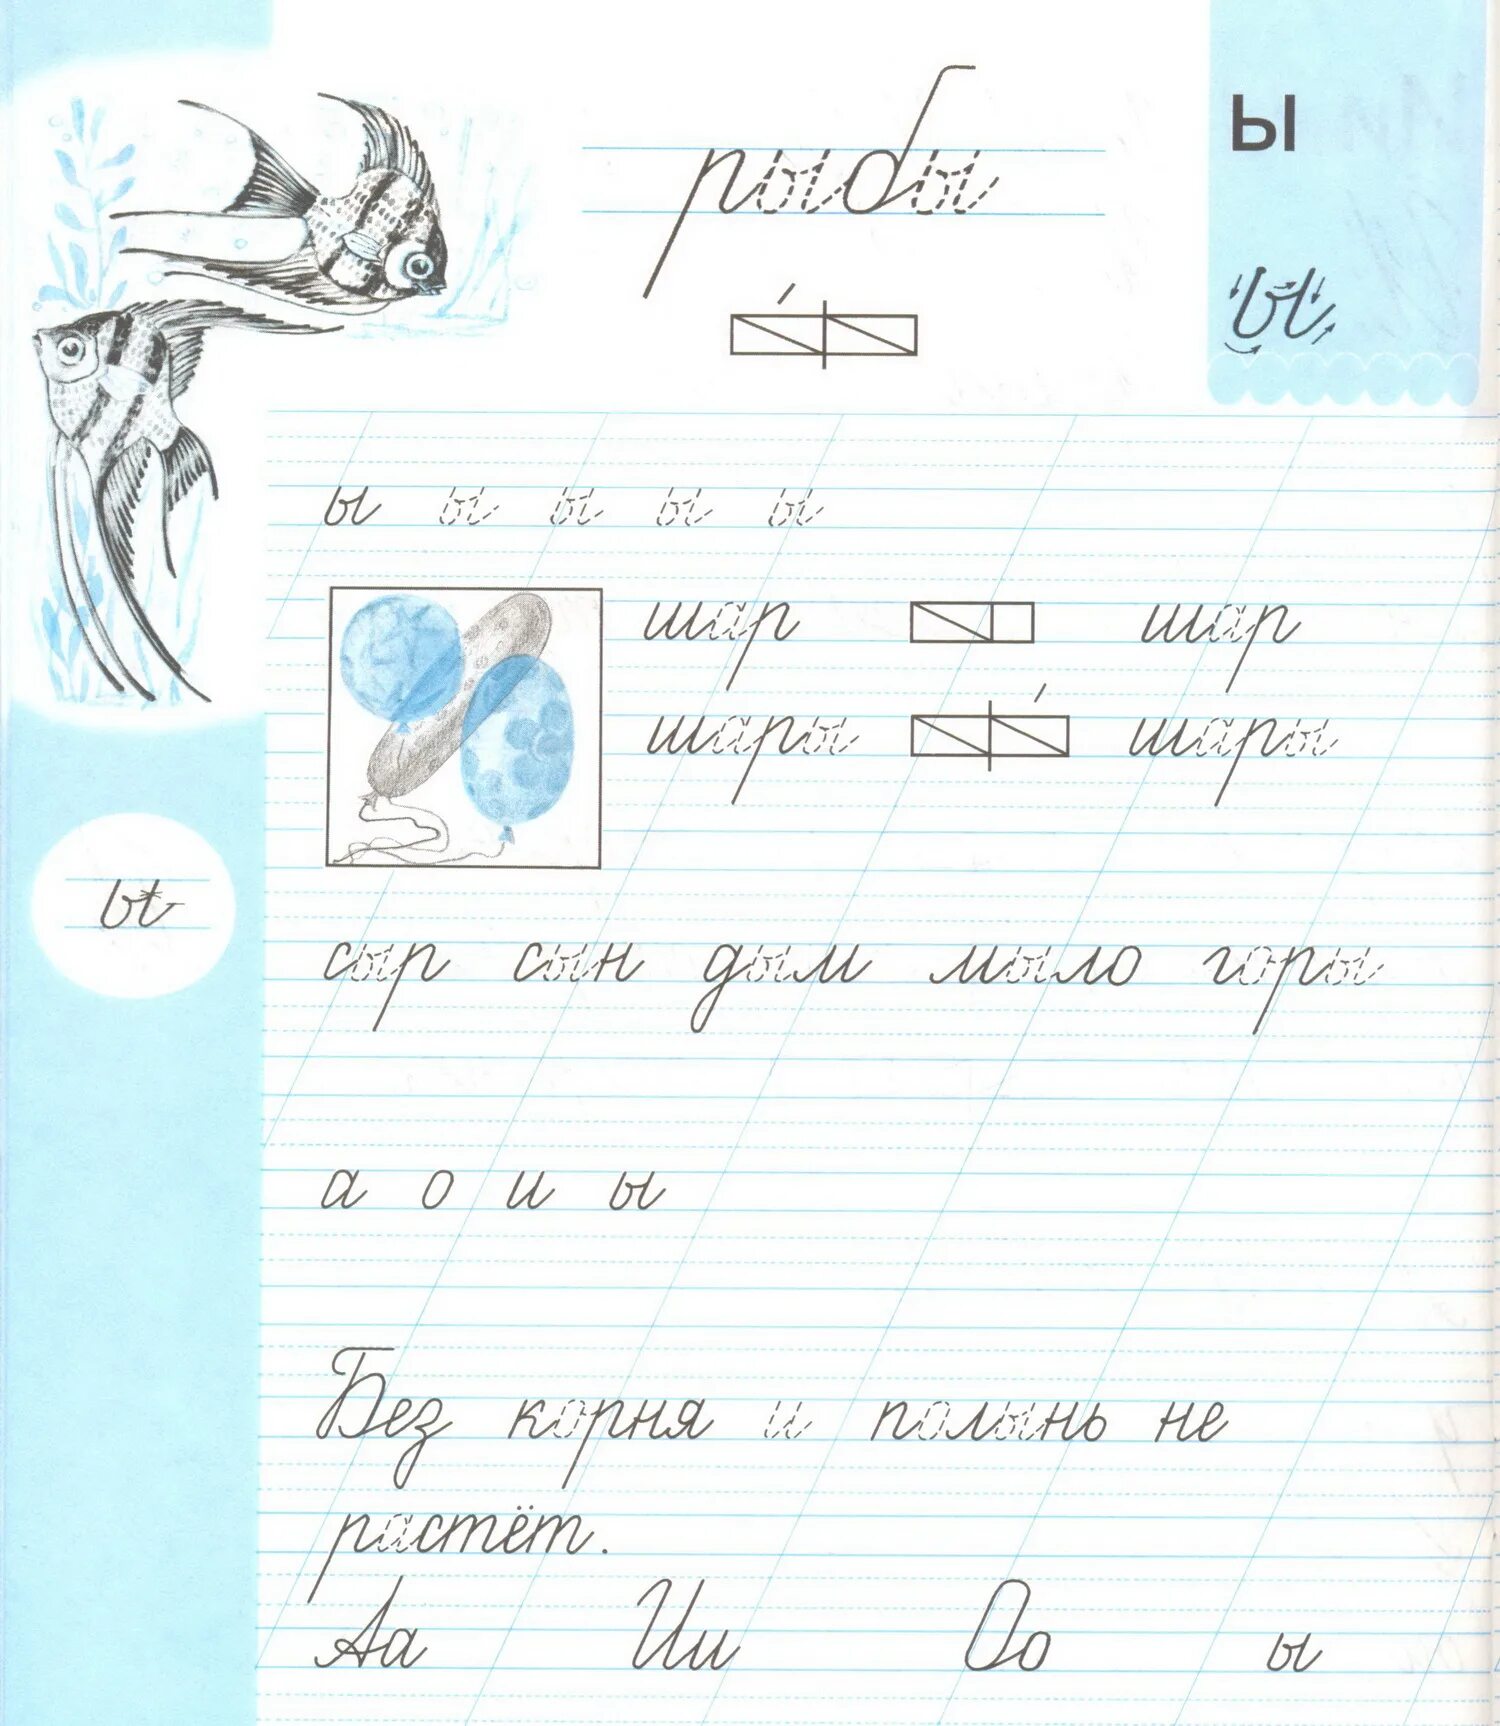 рыбы
ы
ы
ы ы ы ы ы
шар шар
шары шары
ы
сыр сын дым мыло горы
а о и ы
Без корня и полынь не
растёт.
Аа Ии Оо ы